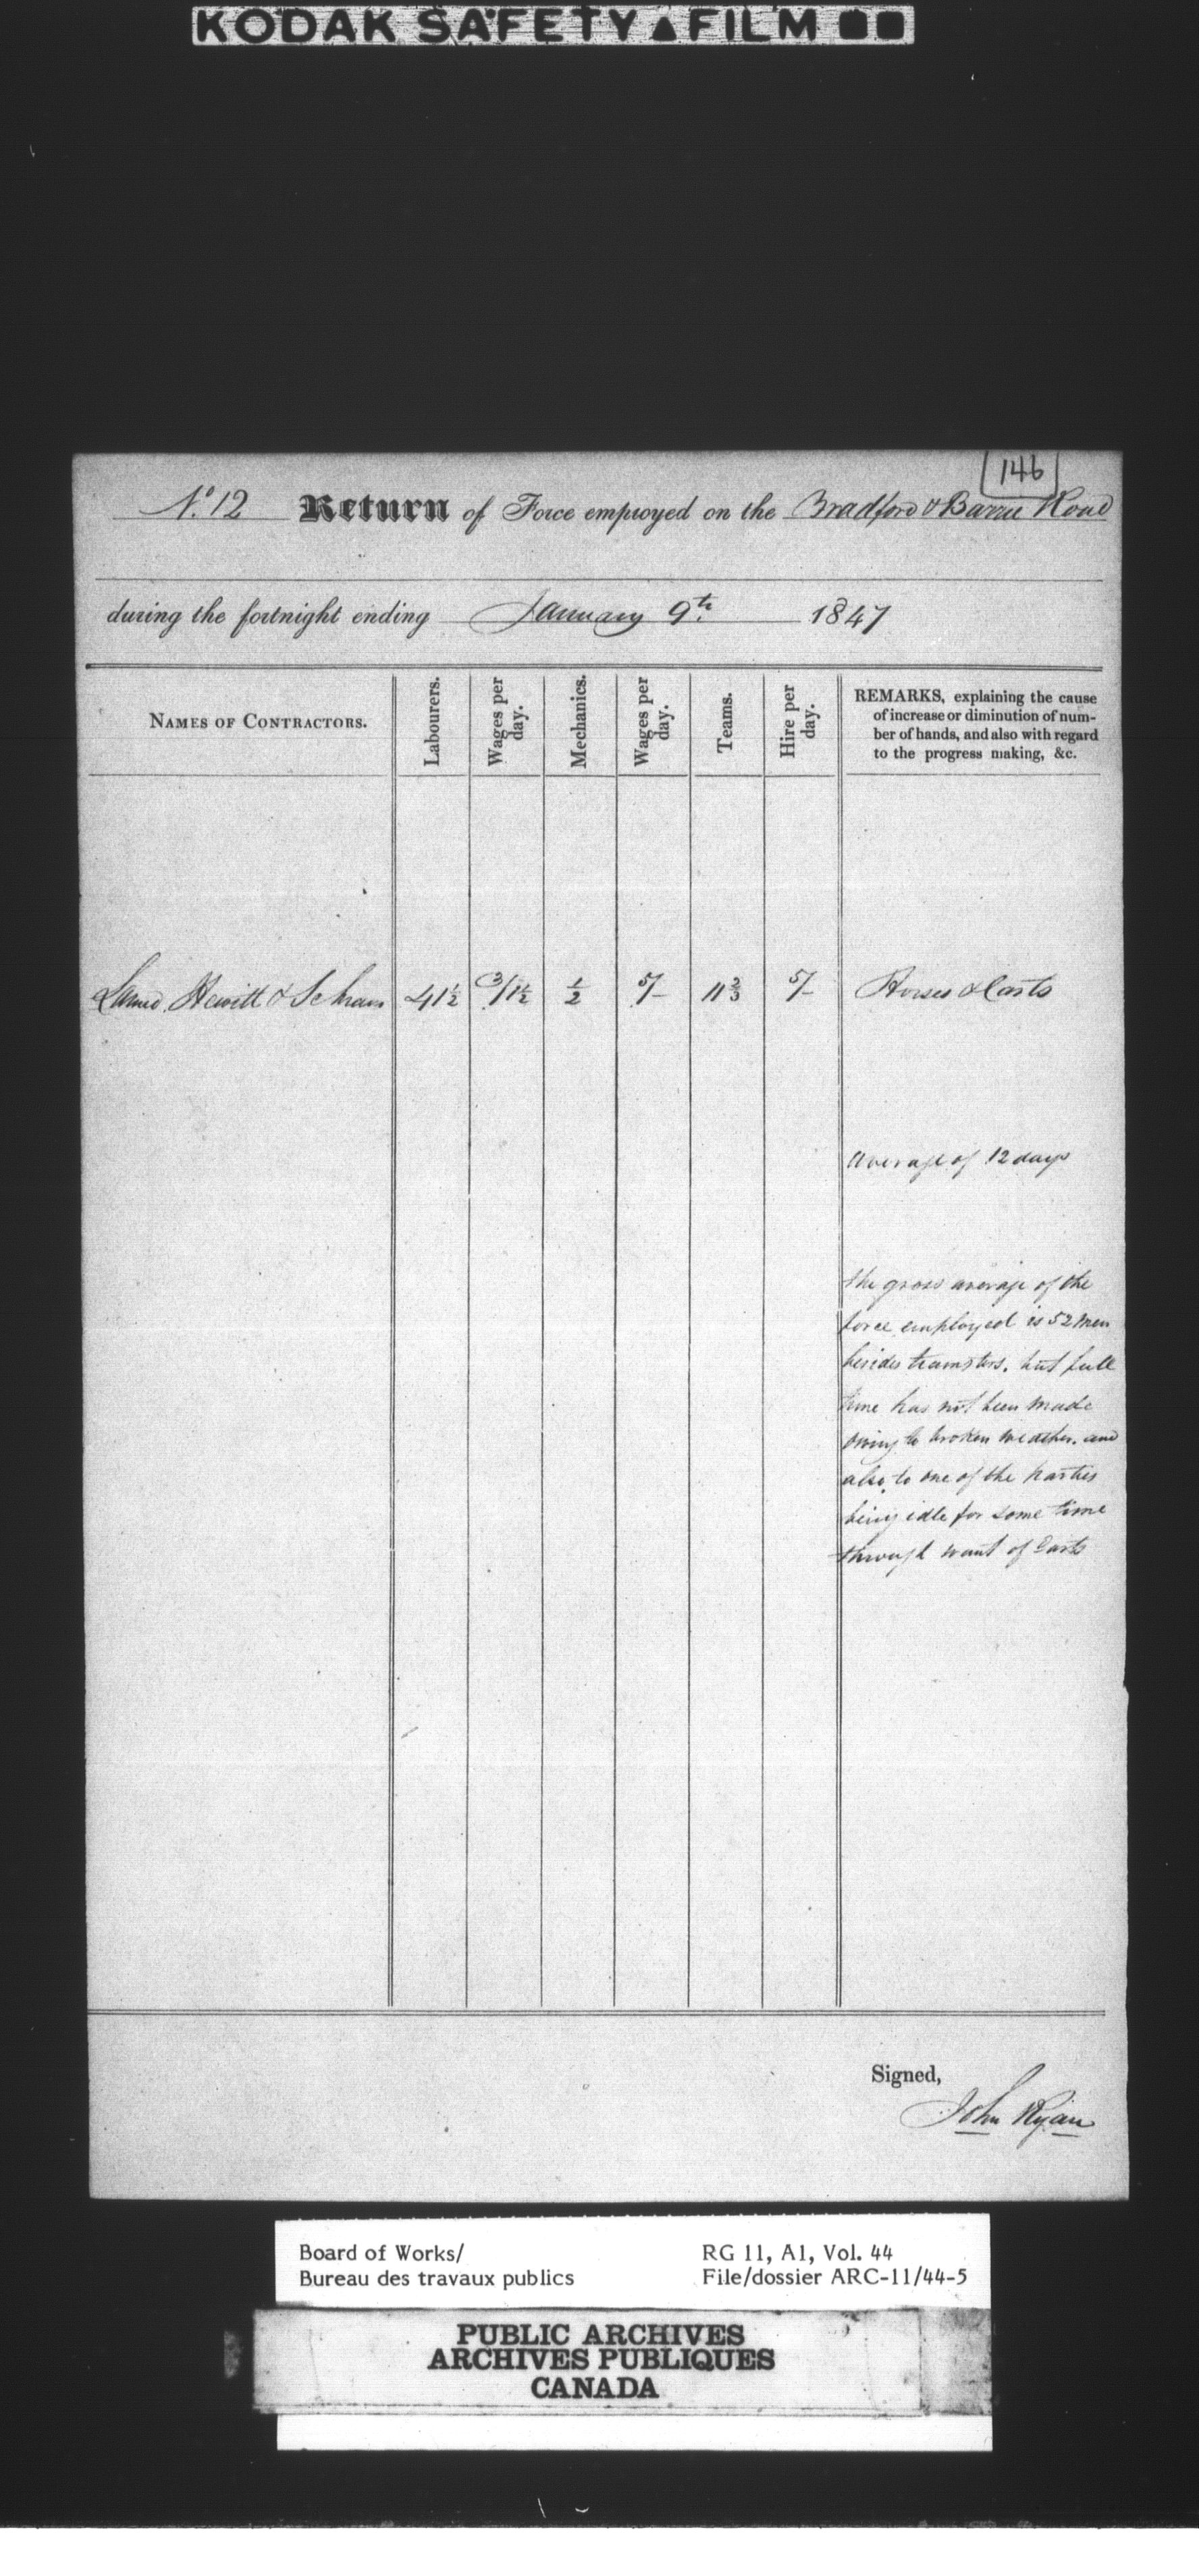 KODAK SAFETY FILM
146
No. 12 Return of Force employed on the Bradford & Barrie Road
during the fortnight ending January 9th. 1847
NAMES OF CONTRACTORS.
Labourers.
Wages per day.
Mechanics.
Wages per day.
Teams.
Hire per day.
REMARKS, explaining the cause
of increase or diminution of num-
ber of hands, and also with regard
to the progress making, &c.
Hewitt & 41½ 3/1½ ½ 5/- 11⅔ 5/- Horses & Carts
average of 12 days
the gross average of the
force employed is 52 men
besides teamsters. but full
time has not been made
owing to broken weather. and
also to one of the parties
being idle for some time
through want of Carts
Signed,
John Ryan
Board of Works/
Bureau des travaux publics
RG 11, A1, Vol. 44
File/dossier ARC-11/44-5
PUBLIC ARCHIVES
ARCHIVES PUBLIQUES
CANADA